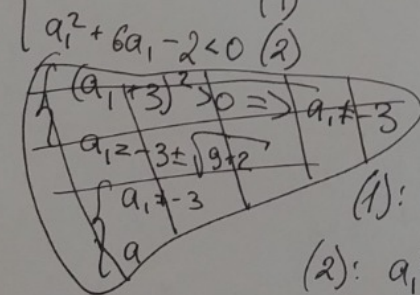 (1)
a₁² + 6a₁ - 2 < 0 (2)
(a₁ + 3)² > 0 => a₁ ≠ -3
a₁ = -3 ± √9+2
a₁ ≠ -3
a
(1):
(2): a₁